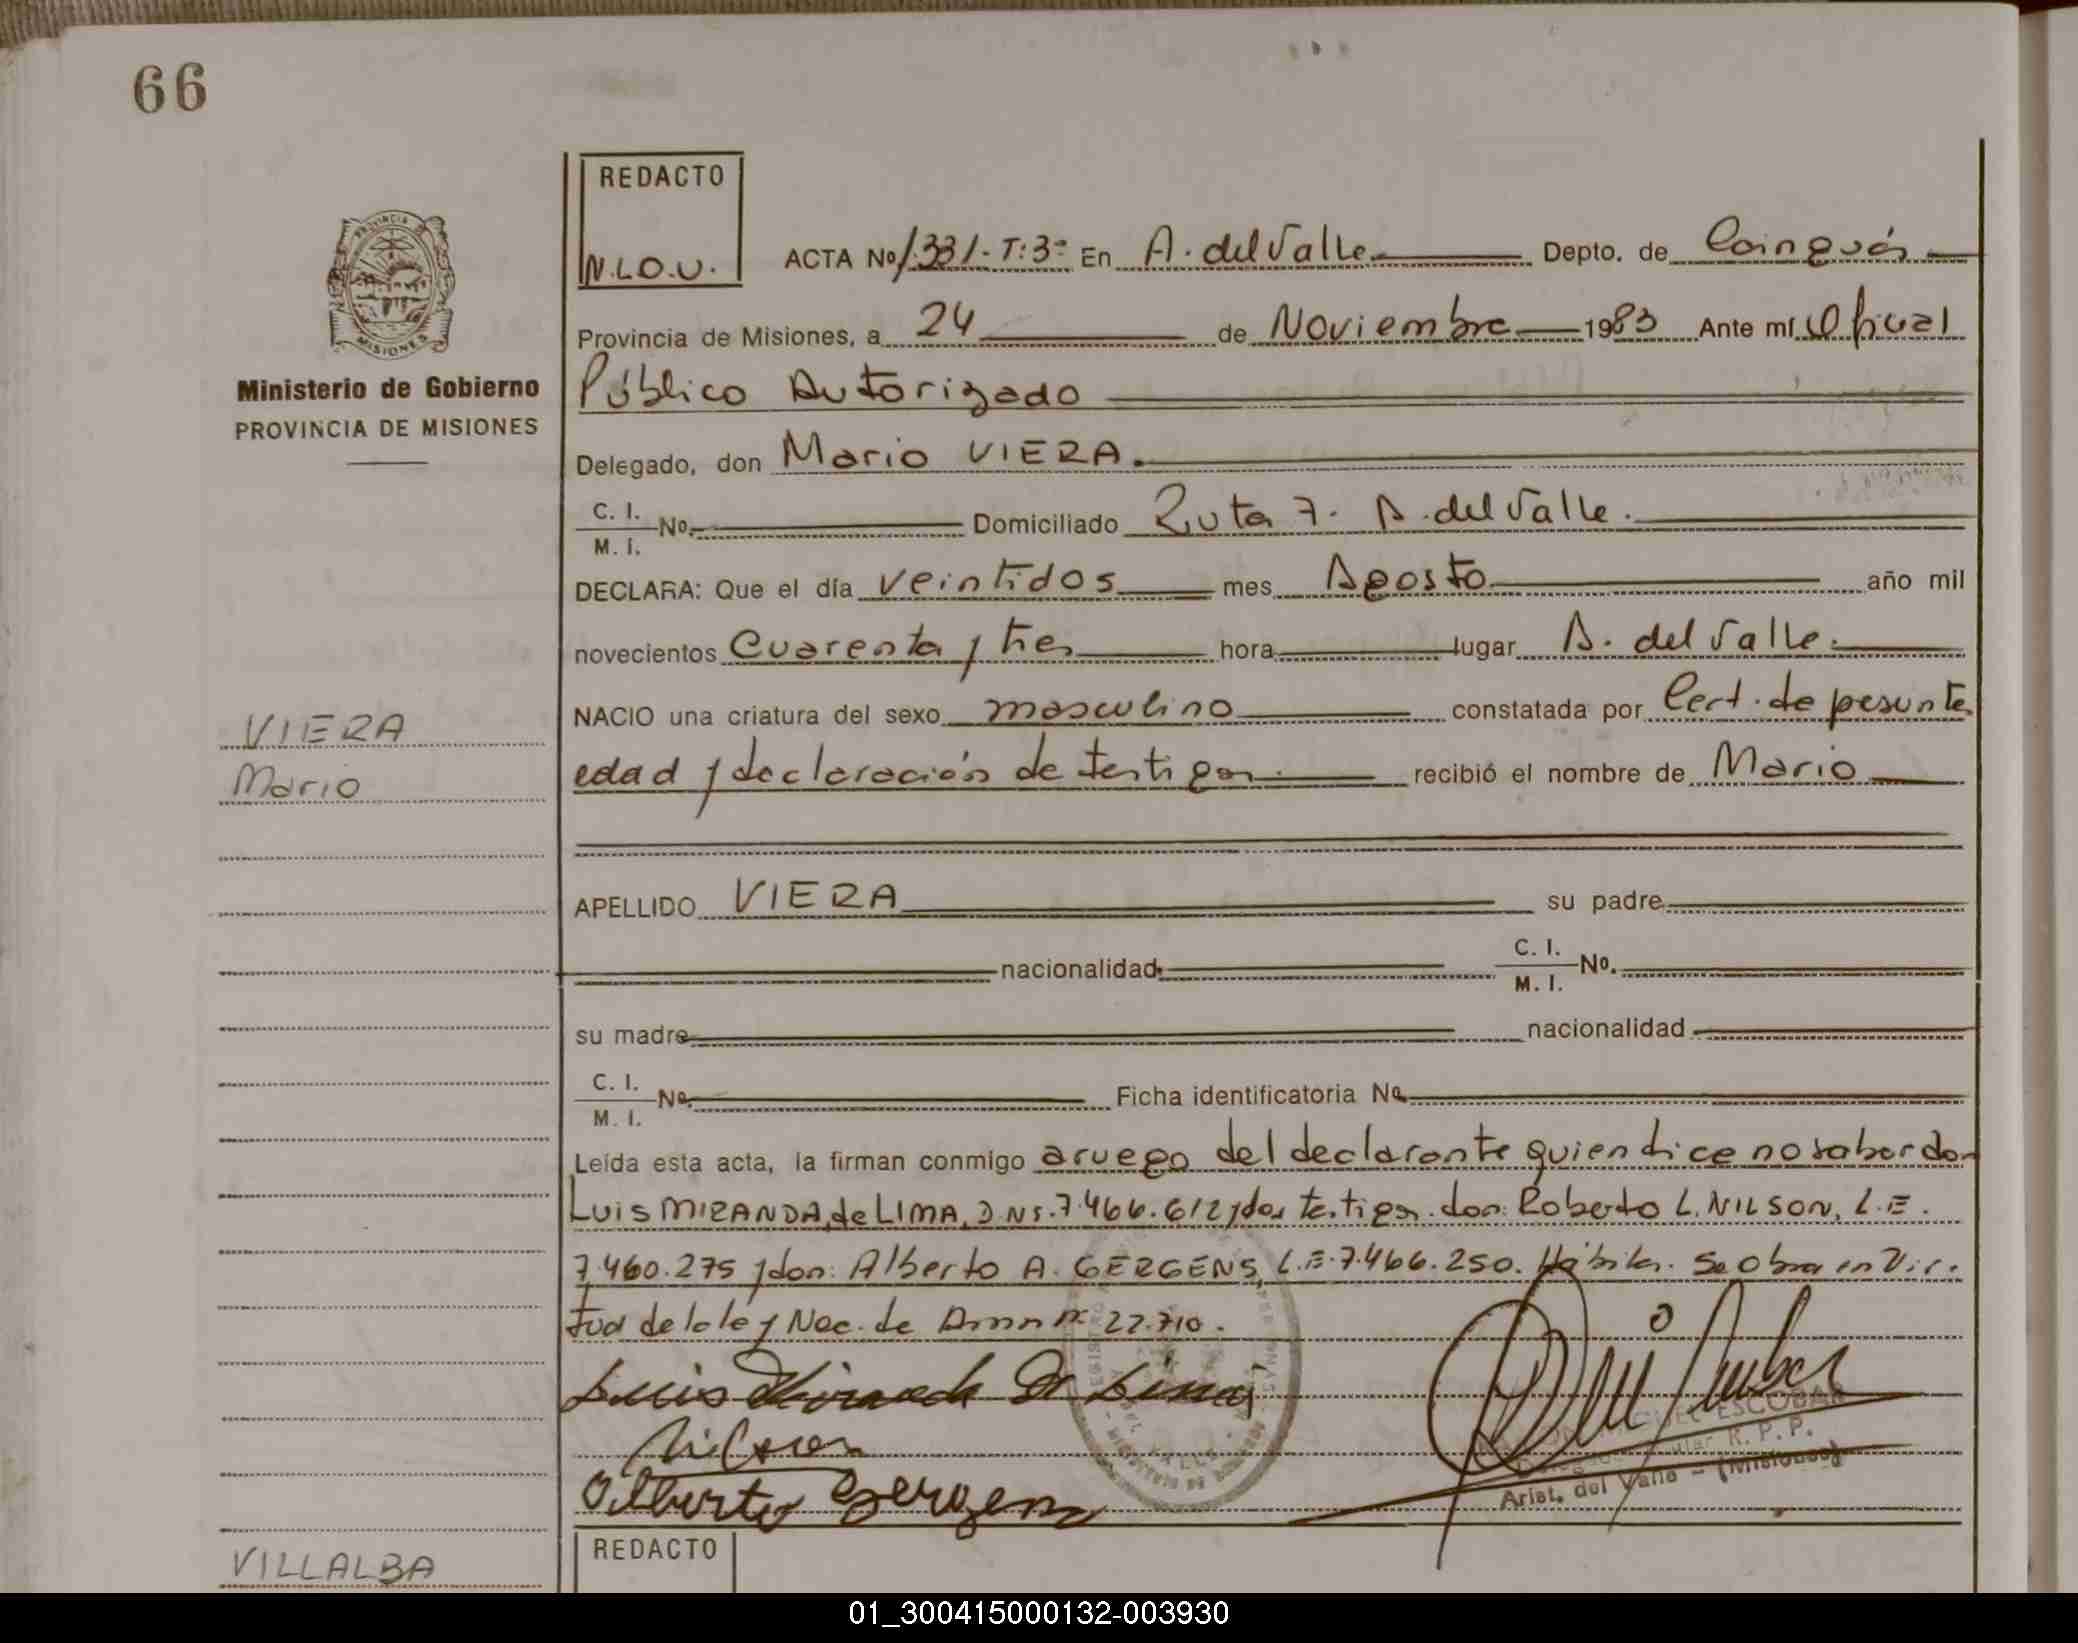 66
REDACTO
N.L.O.U.
ACTA Nº 1.331.-T:3º En A. del Valle Depto. de Cainguás
PROVINCIA
MISIONES
Provincia de Misiones, a 24 de Noviembre 1983 Ante mí Oficial
Público Autorizado
Ministerio de Gobierno
PROVINCIA DE MISIONES
Delegado, don Mario VIERA.
C. I.
M. I. No. Domiciliado Ruta 7. A. del Valle.
DECLARA: Que el día veintidos mes Agosto año mil
novecientos Cuarenta y tres hora lugar A. del Valle.
NACIO una criatura del sexo masculino constatada por Cert. de pesunte
VIERA
edad y declaración de testigos. recibió el nombre de Mario
Mario
APELLIDO VIERA su padre
nacionalidad C. I.
M. I. No.
su madre nacionalidad
C. I.
M. I. No. Ficha identificatoria No.
Leída esta acta, la firman conmigo a ruego del declarante quien dice no saber don
Luis MIRANDA de LIMA, D.N.I. 7.466.612 y dos testigos. don: Roberto L. NILSON, L.E.
7.460.275 y don: Alberto A. GERGENS, L.E. 7.466.250. Hábiles. Se Obra en Vir.
tud de la ley Nac. de Amn nº 22.710.
Luis Miranda De Lima
Nilson
Alberto Gergens
ESCOBAR
R. P. P.
Arist. del Valle - (Misiones)
REDACTO
VILLALBA
01_300415000132-003930